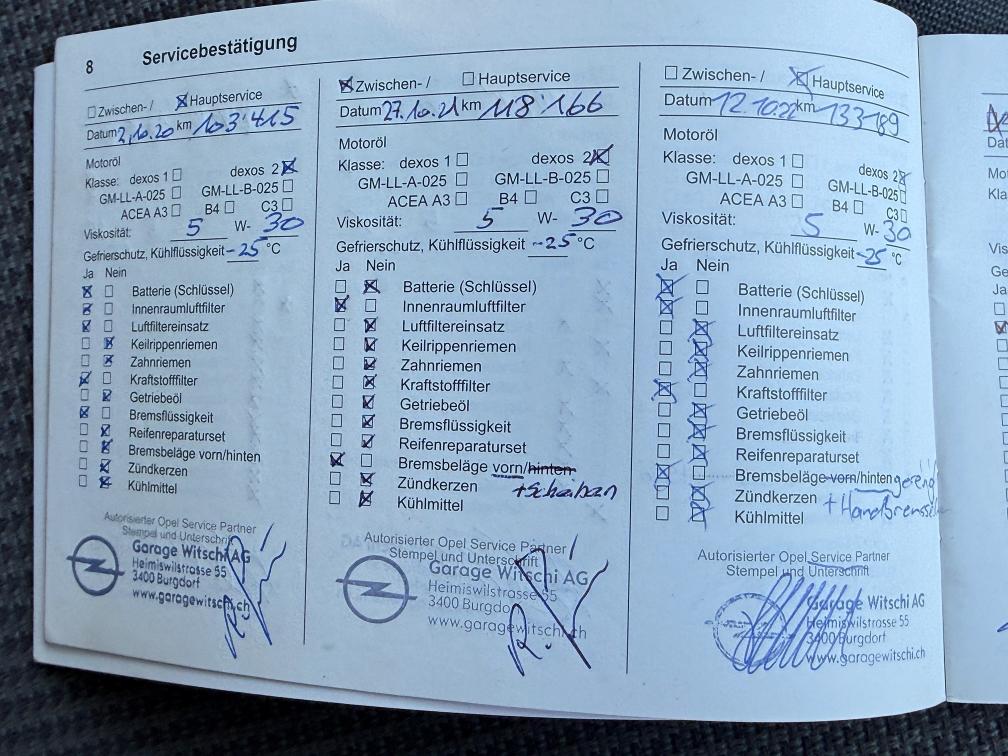 8 Servicebestätigung
Zwischen- / Hauptservice
Datum 2.10.20 km 103'415
Motoröl
Klasse: dexos 1 dexos 2
GM-LL-A-025 GM-LL-B-025
ACEA A3 B4 C3
Viskosität: 5 W- 30
Gefrierschutz, Kühlflüssigkeit -25 °C
Ja Nein
Batterie (Schlüssel)
Innenraumluftfilter
Luftfiltereinsatz
Keilrippenriemen
Zahnriemen
Kraftstofffilter
Getriebeöl
Bremsflüssigkeit
Reifenreparaturset
Bremsbeläge vorn/hinten
Zündkerzen
Kühlmittel
Autorisierter Opel Service Partner
Stempel und Unterschrift
Garage Witschi AG
Heimiswilstrasse 55
3400 Burgdorf
www.garagewitschi.ch
Zwischen- / Hauptservice
Datum 27.10.21 km 118'166
Motoröl
Klasse: dexos 1 dexos 2
GM-LL-A-025 GM-LL-B-025
ACEA A3 B4 C3
Viskosität: 5 W- 30
Gefrierschutz, Kühlflüssigkeit -25 °C
Ja Nein
Batterie (Schlüssel)
Innenraumluftfilter
Luftfiltereinsatz
Keilrippenriemen
Zahnriemen
Kraftstofffilter
Getriebeöl
Bremsflüssigkeit
Reifenreparaturset
Bremsbeläge vorn/hinten
Zündkerzen +Scheiben
Kühlmittel
Autorisierter Opel Service Partner
Stempel und Unterschrift
Garage Witschi AG
Heimiswilstrasse 55
3400 Burgdorf
www.garagewitschi.ch
Zwischen- / Hauptservice
Datum 12.10.22 km 133'189
Motoröl
Klasse: dexos 1 dexos 2
GM-LL-A-025 GM-LL-B-025
ACEA A3 B4 C3
Viskosität: 5 W- 30
Gefrierschutz, Kühlflüssigkeit -25 °C
Ja Nein
Batterie (Schlüssel)
Innenraumluftfilter
Luftfiltereinsatz
Keilrippenriemen
Zahnriemen
Kraftstofffilter
Getriebeöl
Bremsflüssigkeit
Reifenreparaturset
Bremsbeläge vorn/hinten
Zündkerzen
Kühlmittel
Autorisierter Opel Service Partner
Stempel und Unterschrift
Garage Witschi AG
Heimiswilstrasse 55
3400 Burgdorf
www.garagewitschi.ch